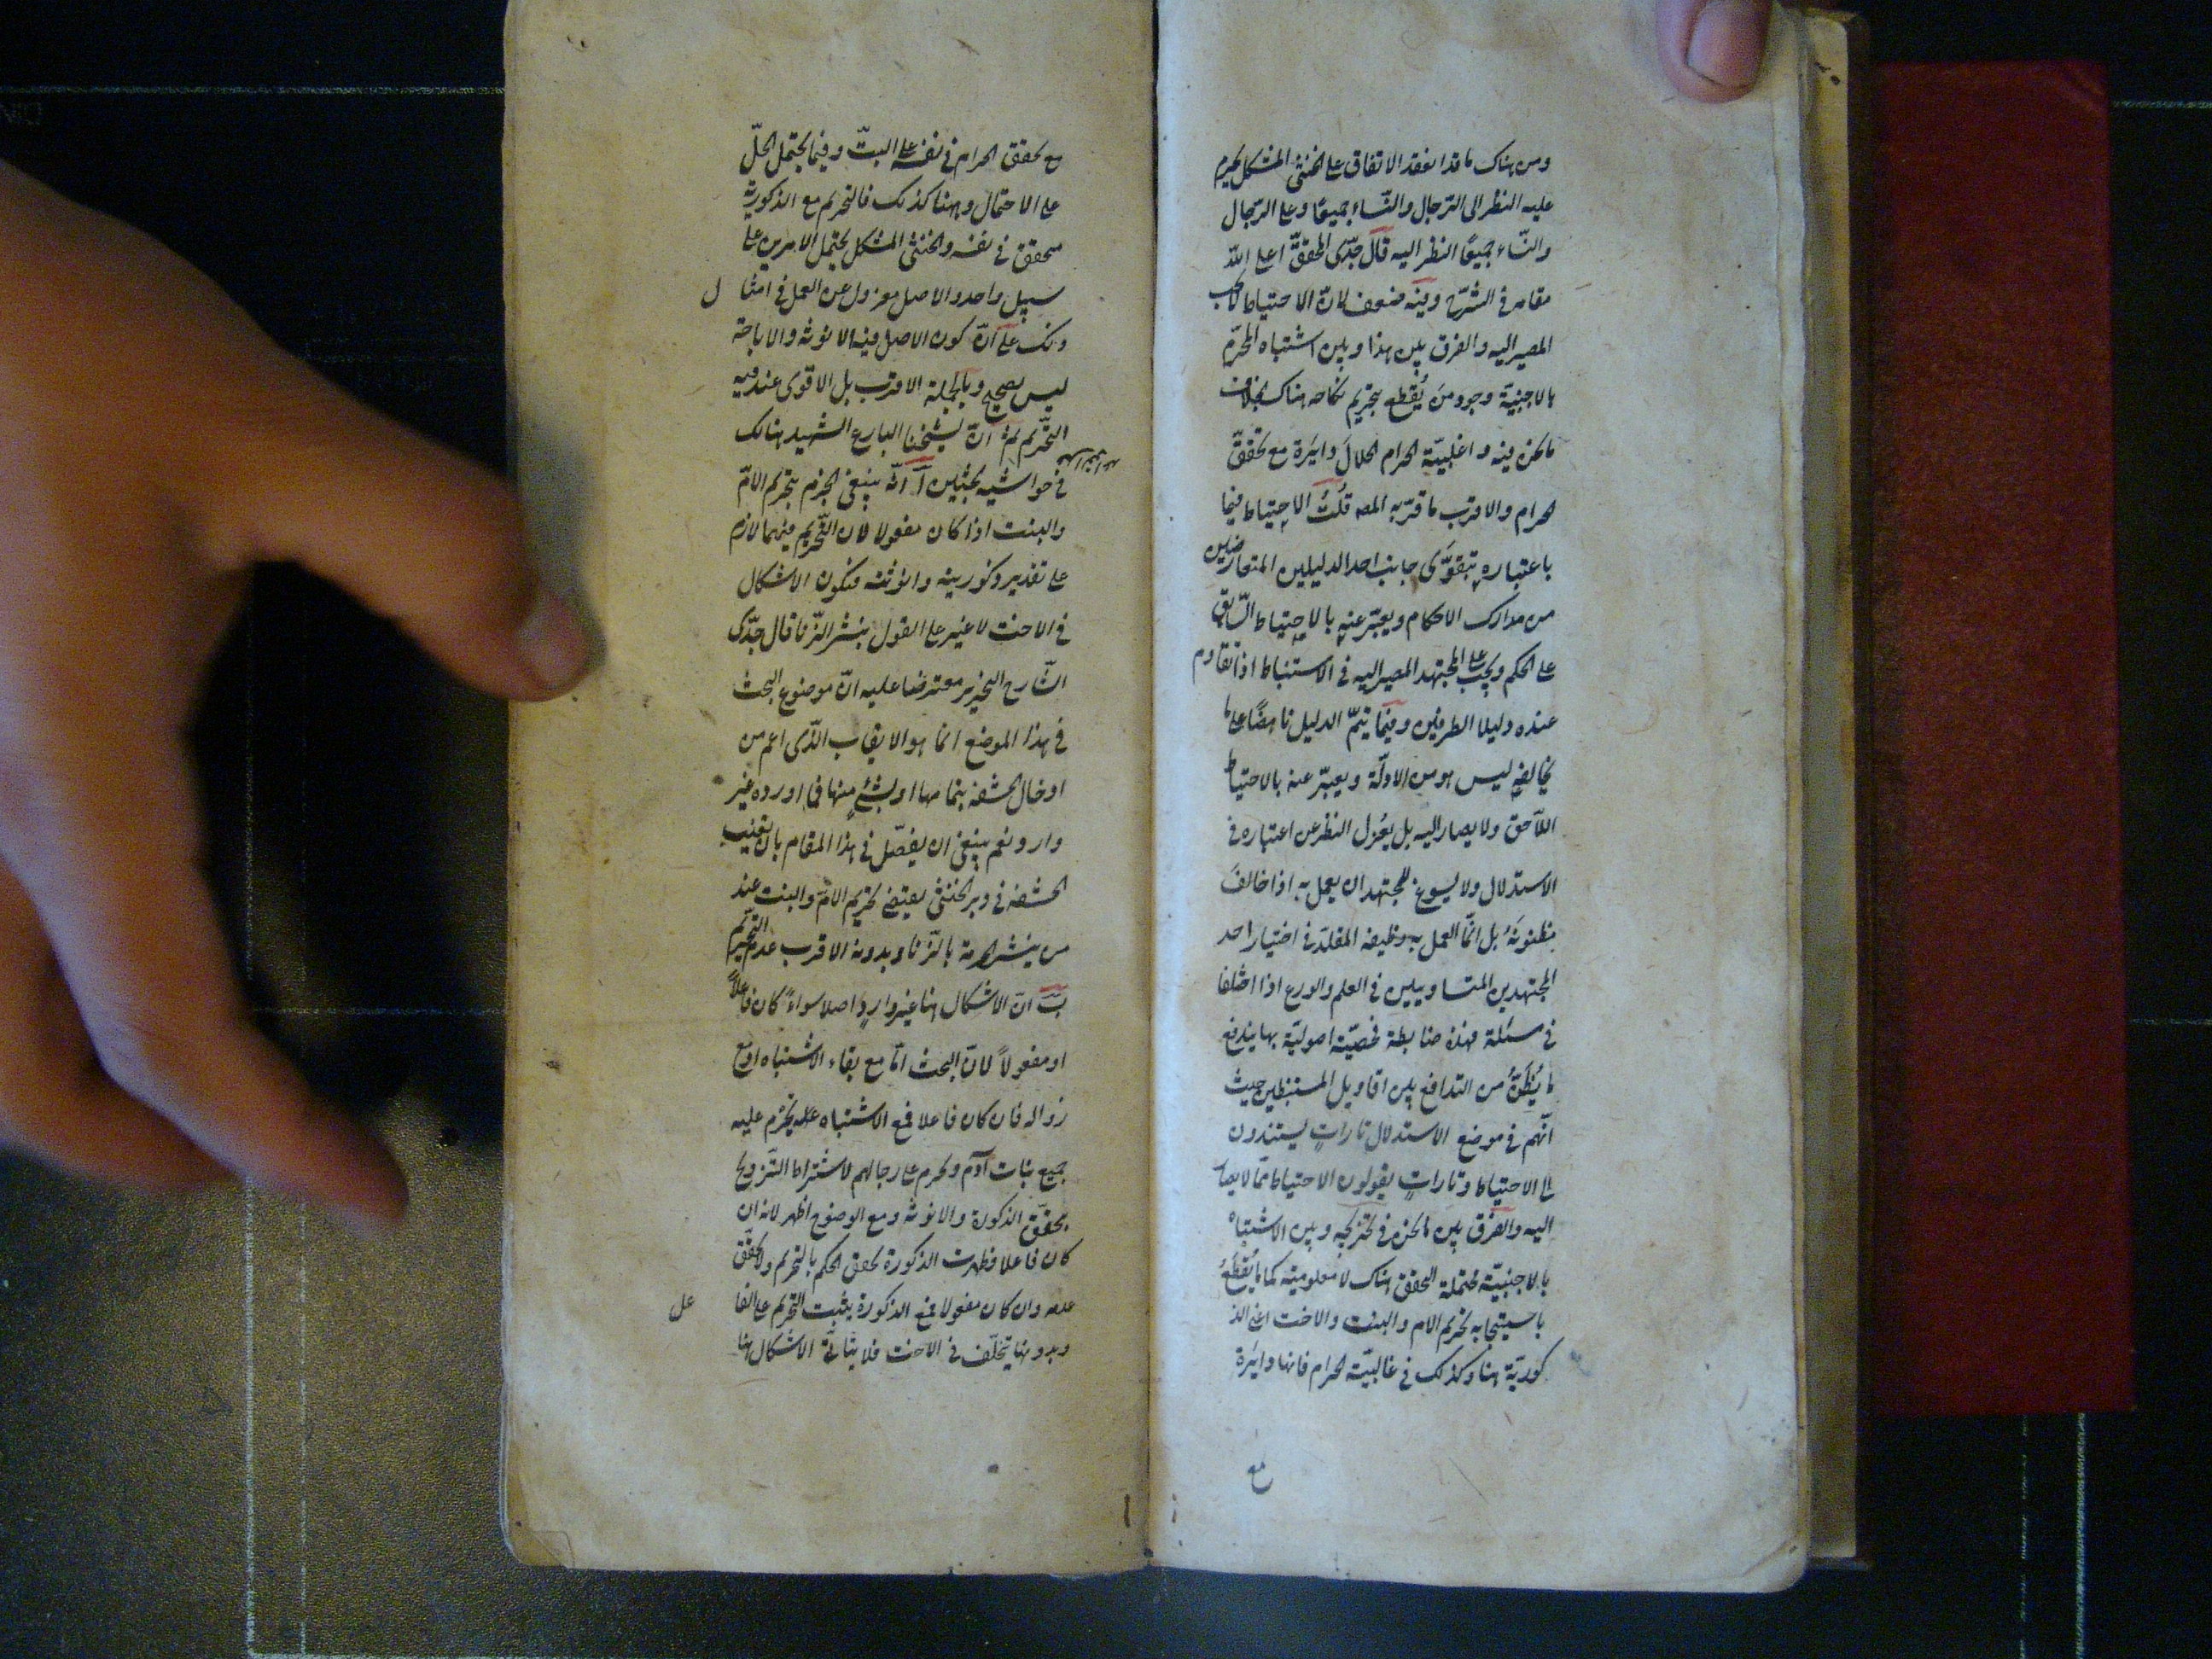 ومن هناك ما قد انعقد الاتفاق على الخنثى المشكل يحرم
عليه النظر الى الرّجال والنّساء جميعًا وعلى الرّجال
والنّساء جميعًا النظر اليه قال جدّى المحقّق اعلى اللّه
مقامه فى الشرح وفيه ضعف لانّ الاحتياط لا يجب
المصير اليه والفرق بين هذا وبين اشتباه المحرّم
بالاجنبيّة وجود من يُقطع بتحريم نكاحه هناك بخلاف
ما نحن فيه و اغلبيّة الحرام الحلالَ دايرة مع تحقّق
الحرام والاقرب ما قرّبه المصه قُلتُ الاحتياط فيما
باعتباره يتقوّى جانب احد الدليلين المتعارضين
من مدارك الاحكام ويعبّر عنه بالاحتياط السّابق
على الحكم ويجب على المجتهد المصير اليه فى الاستنباط اذا تقاوم
عنده دليلا الطرفين وفيما يتمّ الدليل ناهضًا على ما
يخالفه ليس هو من الادلّة ويعبّر عنه بالاحتياط
اللّاحق ولا يصار اليه بل يُعزل النظر عن اعتباره فى
الاستدلال ولا يسوغ للمجتهد ان يعمل به اذا خالفَ
مظنونَهُ بل انّما العمل به وظيفة المقلّد فى اختيار احد
المجتهدين المتساويين فى العلم والورع اذا اختلفا
فى مسئلة فهذه ضابطة اصوليّة بها يندفع
ما يُظَنُّ من التدافع بين اقاويل المستنبطين حيث
انّهم فى موضع الاستدلال تاراتٍ يستندون
الى الاحتياط وتاراتٍ يقولون الاحتياط ممّا لا يصار
اليه والفرق بين ما نحن فى تحريجه وبين الاشتباه
بالاجنبيّة محتملة التحقق هناك لا معلوميته كما يُقطَعُ
باستيجابه تحريم الام والبنت والاخت اعنى الذ
كوريّة هنا وكذلك فى غالبيّة الحرام فانها دايرة
مع
مع تحقق الحرام فى نفسه على البتّ وفيما يحتمل الحلّ
على الاحتمال وههنا كذلك فالتحريم مع الذكوريّة
متحقق فى نفسه والخنثى المشكل يحتمل الامرين على
سبيل واحد والاصل معزول عن العمل فى امثال
ذلك على انّ كون الاصل فيه الانوثة والاباحة
ليس بصحيح وبالجملة الاقرب بل الاقوى عندى فيه
التّحريم ثمّ انّ لشيخنا البارع الشهيد هنالك
فى حواشيه بحثين آ انّه ينبغى الجزم بتحريم الامّ
والبنت اذا كان مفعولا لان التّحريم فيهما لازم
على تقدير ذكوريته وانوثته فيكون الاشكال
فى الاخت لا غير على القول بنشر الزّنا قال جدّى
الشّارح النحرير معترضا عليه انّ موضوع البحث
فى هذا الموضع انما هو الايقاب الّذى اعم من
ادخال الحشفة بتمامها او بشئٍ منها فما اورده غير
وارد نعم ينبغى ان يفصّل فى هذا المقام بان تغييب
الحشفة فى دبر الخنثى يقتضى تحريم الامّ والبنت عند
من ينشر الحرمة بالزّنا وبدونه الاقرب عدم التّحريم
بَ انّ الاشكال هنا غير واردٍ اصلا سواءً كان فاعلاً
او مفعولاً لانّ البحث امّا مع بقاء الاشتباه او مع
زواله فان كان فاعلا فمع الاشتباه يحرم عليه
جميع بنات آدم ويحرم على رجالهم لاشتراط التّزويج
بتحقّق الذكورة والانوثة ومع الوضوح اظهر لانه ان
كان فاعلا فظهرت الذكورة تحقق الحكم بالتحريم والّا تحقّق
عدمه وان كان مفعولا فمع الذكورة يثبت التحريم على الفاعل
وبدونها يتخلّف فى الاخت فلا يتأتّى الاشكال هنا